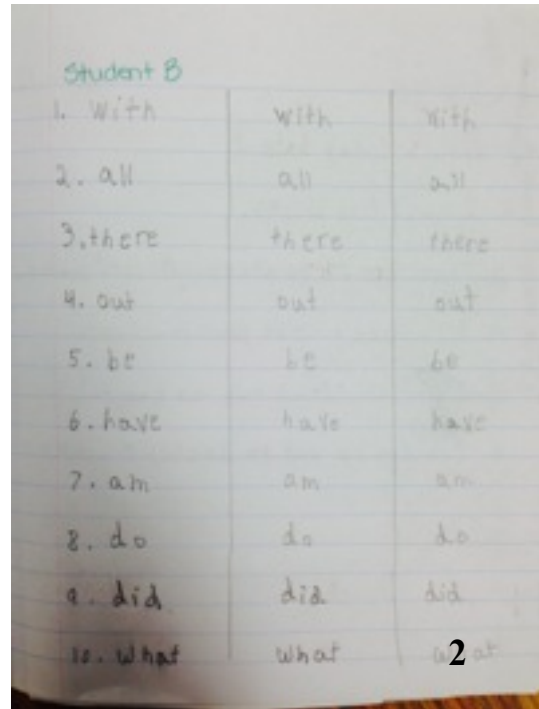 Student B
1. With with with
2. all all all
3. there there there
4. out out out
5. be be be
6. have have have
7. am am am
8. do do do
9. did did did
10. what what what
2